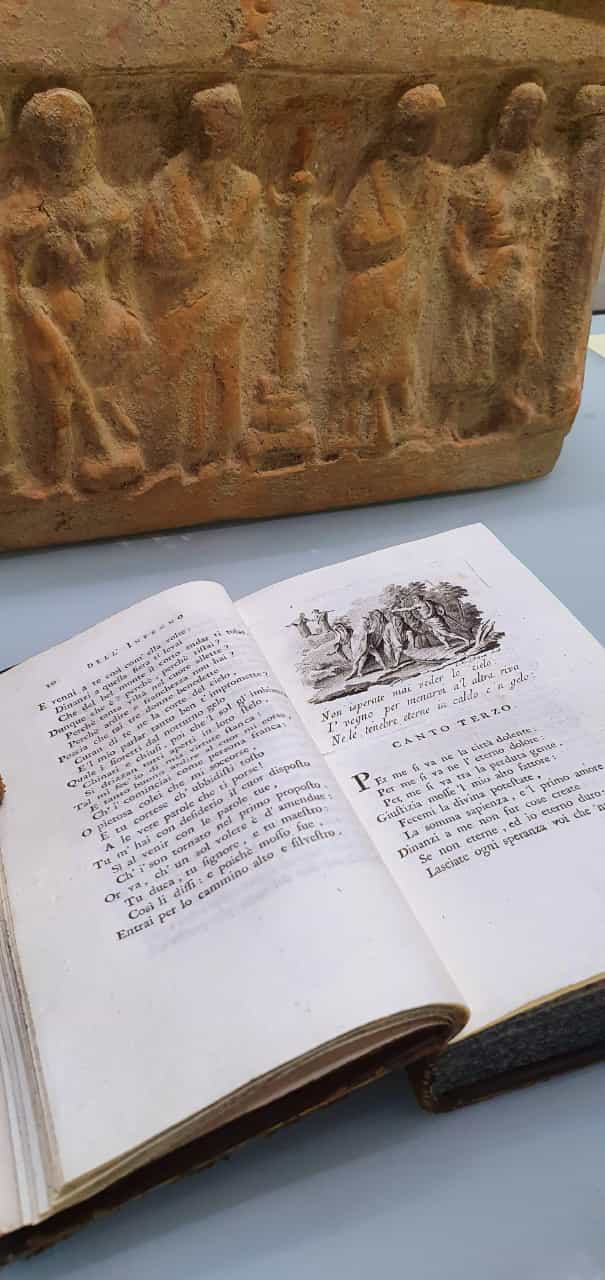 10 DELL' INFERNO
E venni a te così com' ella volse:
Dinanzi a quella fiera ti levai
Che del bel monte il corto andar ti tolse.
Dunque che è? perchè, perchè ristai?
Perchè tanta viltà nel cuore allette?
Perchè ardire e franchezza non hai?
Poscia che tai tre donne benedette
Curan di te ne la corte del cielo,
E 'l mio parlar tanto ben t' impromette?
Quale i fioretti dal notturno gelo
Chinati e chiusi, poi che 'l sol gl' imbianca
Si drizzan tutti aperti in loro stelo;
Tal mi fec' io di mia virtute stanca:
E tanto buono ardire al cuor mi corse,
Ch' i' cominciai come persona franca:
O pietosa colei che mi soccorse,
E tu cortese ch' ubbidisti tosto
A le vere parole che ti porse!
Tu m' hai con desiderio il cuor disposto
Sì al venir con le parole tue,
Ch' i' son tornato nel primo proposto.
Or va, ch' un sol volere è d' amendue:
Tu duca, tu signore, e tu maestro:
Così li dissi: e poichè mosso fue,
Entrai per lo cammino alto e silvestro.
Non isperate mai veder lo cielo
I' vegno per menarvi a l' altra riva
Ne le tenebre eterne in caldo e 'n gelo:
CANTO TERZO.
PEr me si va ne la città dolente:
Per me si va ne l' eterno dolore:
Per me si va tra la perduta gente.
Giustizia mosse 'l mio alto fattore:
Fecemi la divina potestate,
La somma sapienza, e 'l primo amore
Dinanzi a me non fur cose create
Se non eterne, ed io eterno duro:
Lasciate ogni speranza voi che